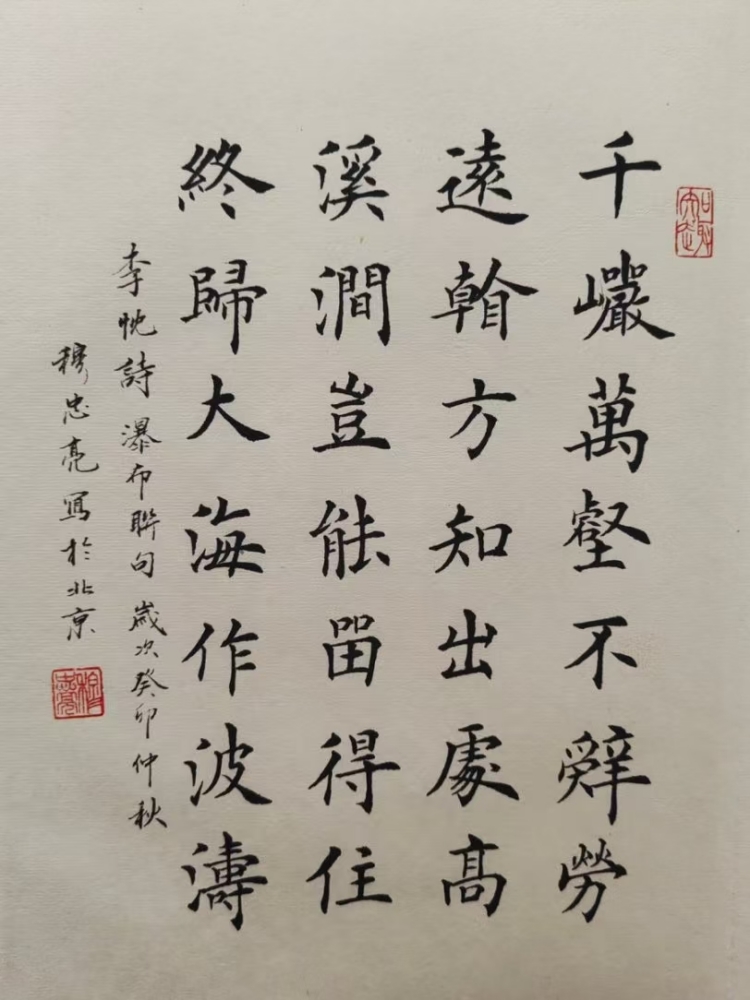 千巖萬壑不辭勞
遠㫺方知出處高
溪澗豈能留得住
終歸大海作波濤
李忱詩瀑布聯句 歲次癸卯仲秋
穆忠亮寫於北京